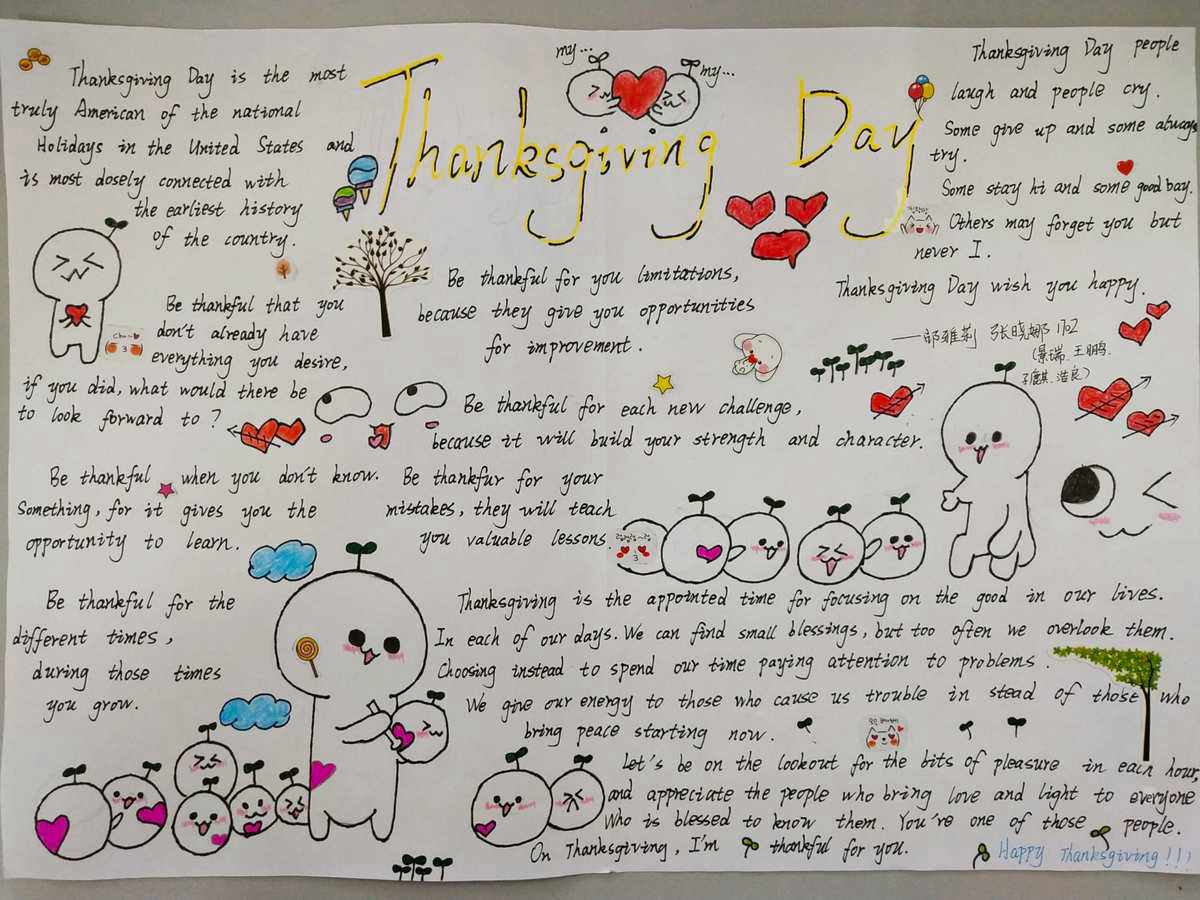 Thanksgiving Day
my...
my...
Thanksgiving Day is the most
truly American of the national
Holidays in the United States and
is most dosely connected with
the earliest history
of the country.
Be thankful that you
don't already have
everything you desire,
if you did, what would there be
to look forward to?
Be thankful when you don't know.
Something, for it gives you the
opportunity to learn.
Be thankful for the
different times,
during those times
you grow.
Be thankful for you limitations,
because they give you opportunities
for improvement.
Be thankful for each new challenge,
because it will build your strength and character.
Be thankfur for your
mistakes, they will teach
you valuable lessons.
Thanksgiving Day people
laugh and people cry.
Some give up and some always
try.
Some stay hi and some good bay.
Others may forget you but
never I.
Thanksgiving Day wish you happy.
——邬雅莉 张晓娜 1702
(景瑞.王鹏鸣.
子麒.浩良)
Thanksgiving is the appointed time for focusing on the good in our lives.
In each of our days. We can find small blessings, but too often we overlook them.
Choosing instead to spend our time paying attention to problems.
We give our energy to those who cause us trouble in stead of those who
bring peace starting now.
Let's be on the lookout for the bits of pleasure in each hour,
and appreciate the people who bring love and light to everyone
who is blessed to know them. You're one of those people.
On Thanksgiving, I'm thankful for you.
Happy Thanksgiving!!!